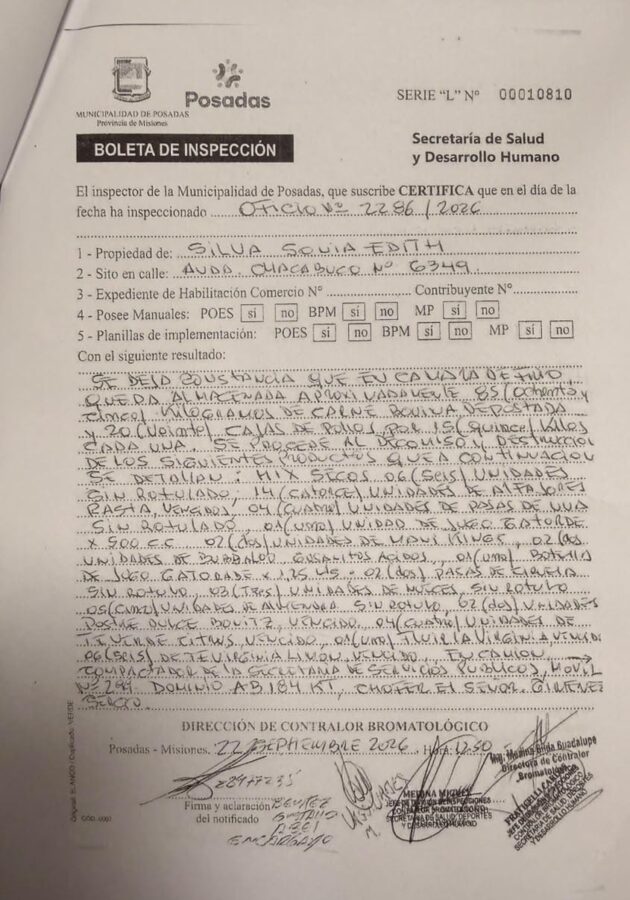 MUNICIPALIDAD DE POSADAS
Provincia de Misiones
Posadas
SERIE "L" Nº 00010810
BOLETA DE INSPECCIÓN
Secretaría de Salud
y Desarrollo Humano
El inspector de la Municipalidad de Posadas, que suscribe CERTIFICA que en el día de la
fecha ha inspeccionado OFICIO Nº 2286/2026
1 - Propiedad de: SILVA SONIA EDITH
2 - Sito en calle: AVDA. CHACABUCO Nº 6349
3 - Expediente de Habilitación Comercio Nº Contribuyente Nº
4 - Posee Manuales: POES sí no BPM sí no MP sí no
5 - Planillas de implementación: POES sí no BPM sí no MP sí no
Con el siguiente resultado:
SE DEJA CONSTANCIA QUE EN CAMARA DE FRIO
QUEDA ALMACENADA APROXIMADAMENTE 85 (ochenta y
cinco) KILOGRAMOS DE CARNE BOVINA DEPOSTADA
Y 20 (veinte) CAJAS DE POLLOS POR 15 (quince) Kilos
CADA UNA. SE PROCEDE AL DECOMISO Y DESTRUCCION
DE LOS SIGUIENTES PRODUCTOS QUE A CONTINUACION
SE DETALLAN: MIX SECOS 06 (seis) UNIDADES
SIN ROTULADO, 14 (catorce) UNIDADES DE ALFAJORES
RASTA, VENCIDOS, 04 (cuatro) UNIDADES DE PASAS DE UVA
SIN ROTULADO, 01 (uno) UNIDAD DE JUGO GATORDE
X 500 C.C. 02 (dos) UNIDADES DE MANI KINGS, 02 (dos
UNIDADES DE GUSANITOS ACIDOS, 01 (uno) BOTELLA
DE JUGO GATORADE X 1,25 - 02 (dos) PASAS DE CIRUELA
SIN ROTULO, 03 (tres) UNIDADES DE NUECES SIN ROTULO
05 (cinco) UNIDADES DE ALMENDRA SIN ROTULO, 02 (dos) UNIDADES
POSTRE DULCE VENCIDO, 04 (cuatro) UNIDADES DE
TE VERDE CITRUS VENCIDO, 01 (uno) VIRGINIA, VENCIDO
06 (seis) DE TE VIRGINIA LIMON, VENCIDO. EN CAMION
COMPACTADOR DE LA SECRETARIA DE SERVICIOS PUBLICOS, MOVIL
Nº DOMINIO AB 184 KT, CHOFER EL SEÑOR GIMENEZ
SERGIO.
DIRECCIÓN DE CONTRALOR BROMATOLÓGICO
Posadas - Misiones, 22 SEPTIEMBRE 2026, Hora: 12:50
Firma y aclaración
del notificado
BENITEZ
ENCARGADO
MEDINA MIGUEL
SECRETARIA DE SALUD, DEPORTES
Y DESARROLLO HUMANO
Guadalupe
Directora de Contralor
Original: BLANCO / Duplicado: VERDE